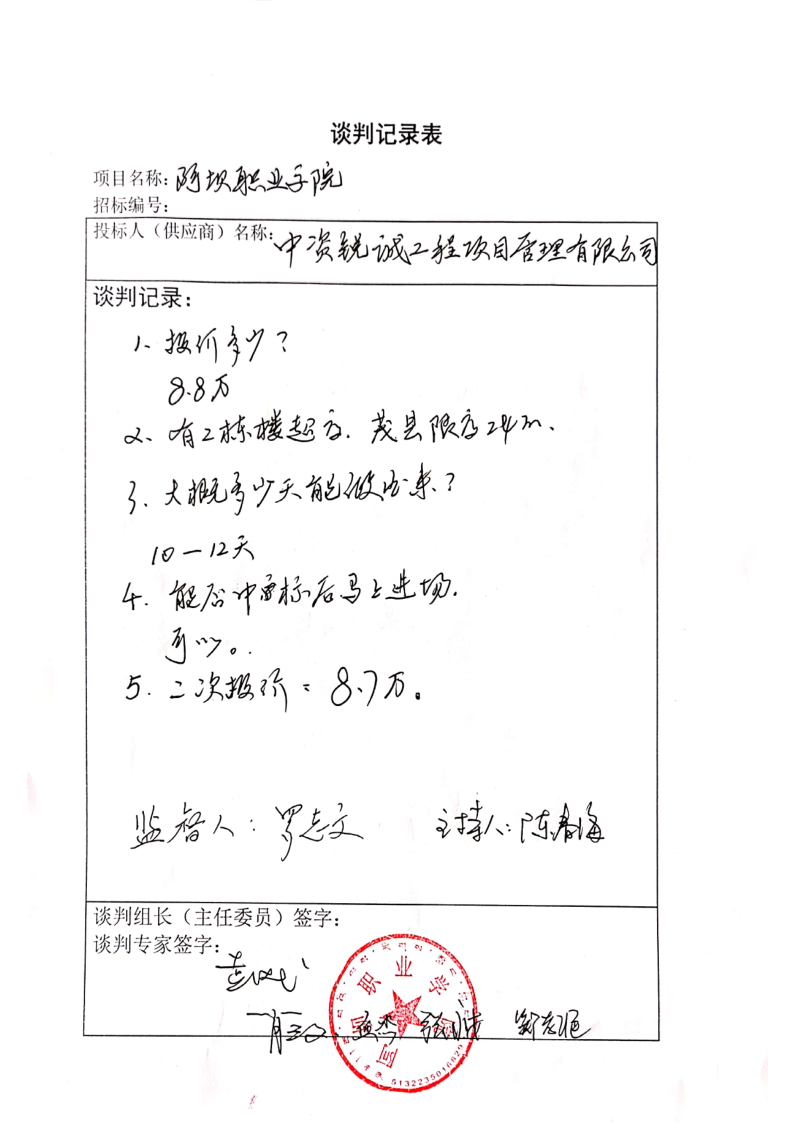 谈判记录表
项目名称：阿坝职业学院
招标编号：
投标人（供应商）名称：中资锐诚工程项目管理有限公司
谈判记录：
1、报价多少？
8.8万
2、有2栋楼超高．茂县限高24m．
3、大概多少天能做出来？
10－12天
4．能否中标后马上进场．
可以。
5．二次报价＝8.7万。
监督人：罗志文 主持人：陈春海
谈判组长（主任委员）签字：
谈判专家签字：
职业学
5132235016629